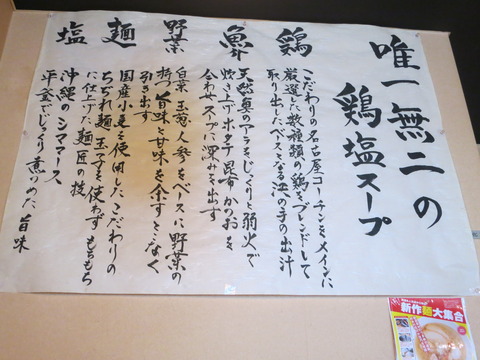 唯一無二の
鶏塩スープ
鶏
こだわりの名古屋コーチンをメインに
厳選した数種類の鶏をブレンドして
取り出したベースとなる
の出汁
魚
天然魚のアラをじっくりと弱火で
炊き上げホタテ昆布かつおを
合わせスープに深みを出す
野菜
白菜、玉葱、人参をベースに野菜の
持つ旨味と甘味を余すことなく
引き出す
麺
国産小麦を使用したこだわりの
ちぢれ麺玉子を使わずもちもち
に仕上げた麺匠の技
塩
沖縄のシママース
平釜でじっくり煮つめた旨味
新作麺大集合